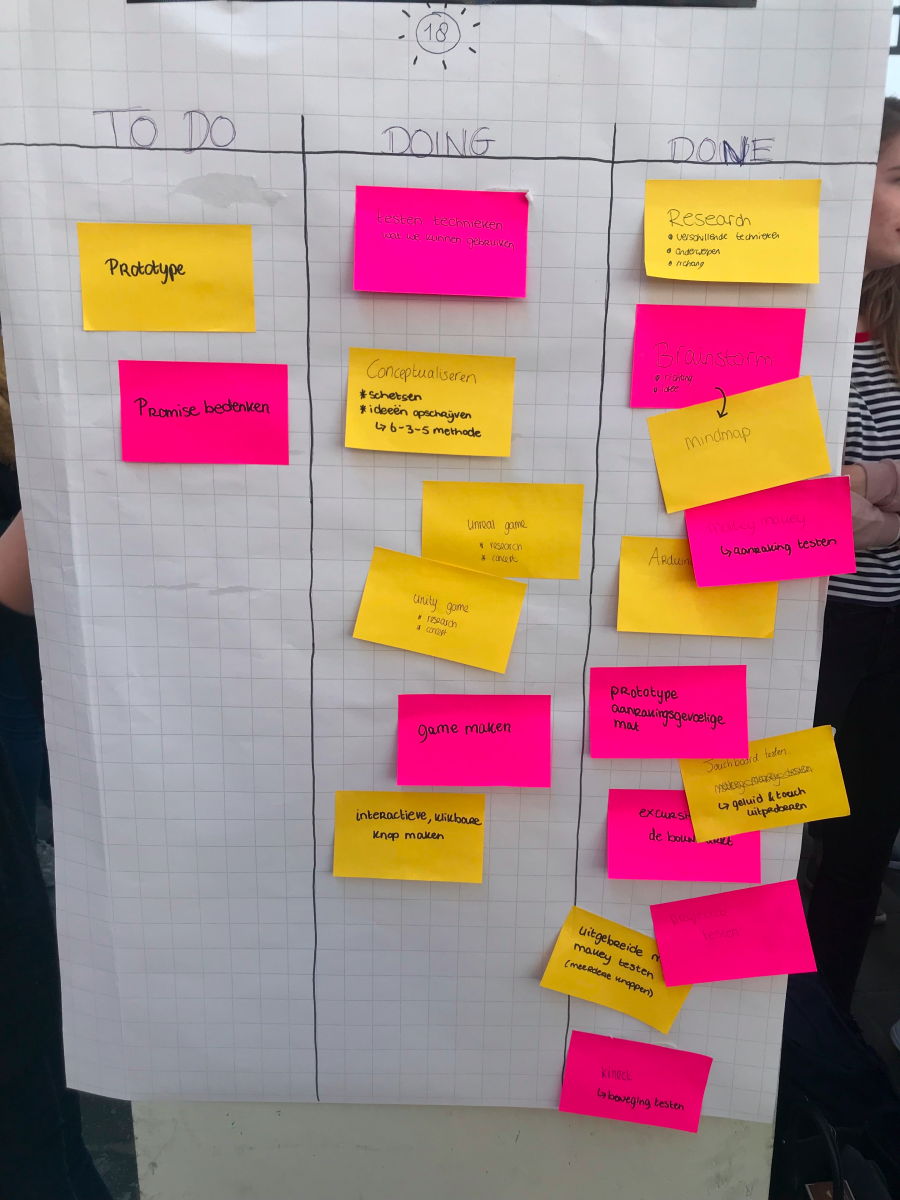 18
TO DO
DOING
DONE
Prototype
Promise bedenken
testen technieken
wat we kunnen gebruiken
Conceptualiseren
* schetsen
* ideeën opschrijven
↳ 6-3-5 methode
Unreal game
* research
* concept
Unity game
* research
* concept
game maken
interactieve, klikbare
knop maken
Research
* verschillende technieken
* onderwerpen
* richting
Brainstorm
* richting
* idee
mindmap
makey makey
↳ aanraking testen
Arduin
prototype
aanrakingsgevoelige
mat
Touchboard testen
makey makey testen
↳ geluid & touch
uitproberen
excurs
de bouw
Uitgebreide m
makey testen
(meerdere knoppen)
testen
Kinect
↳ beweging testen